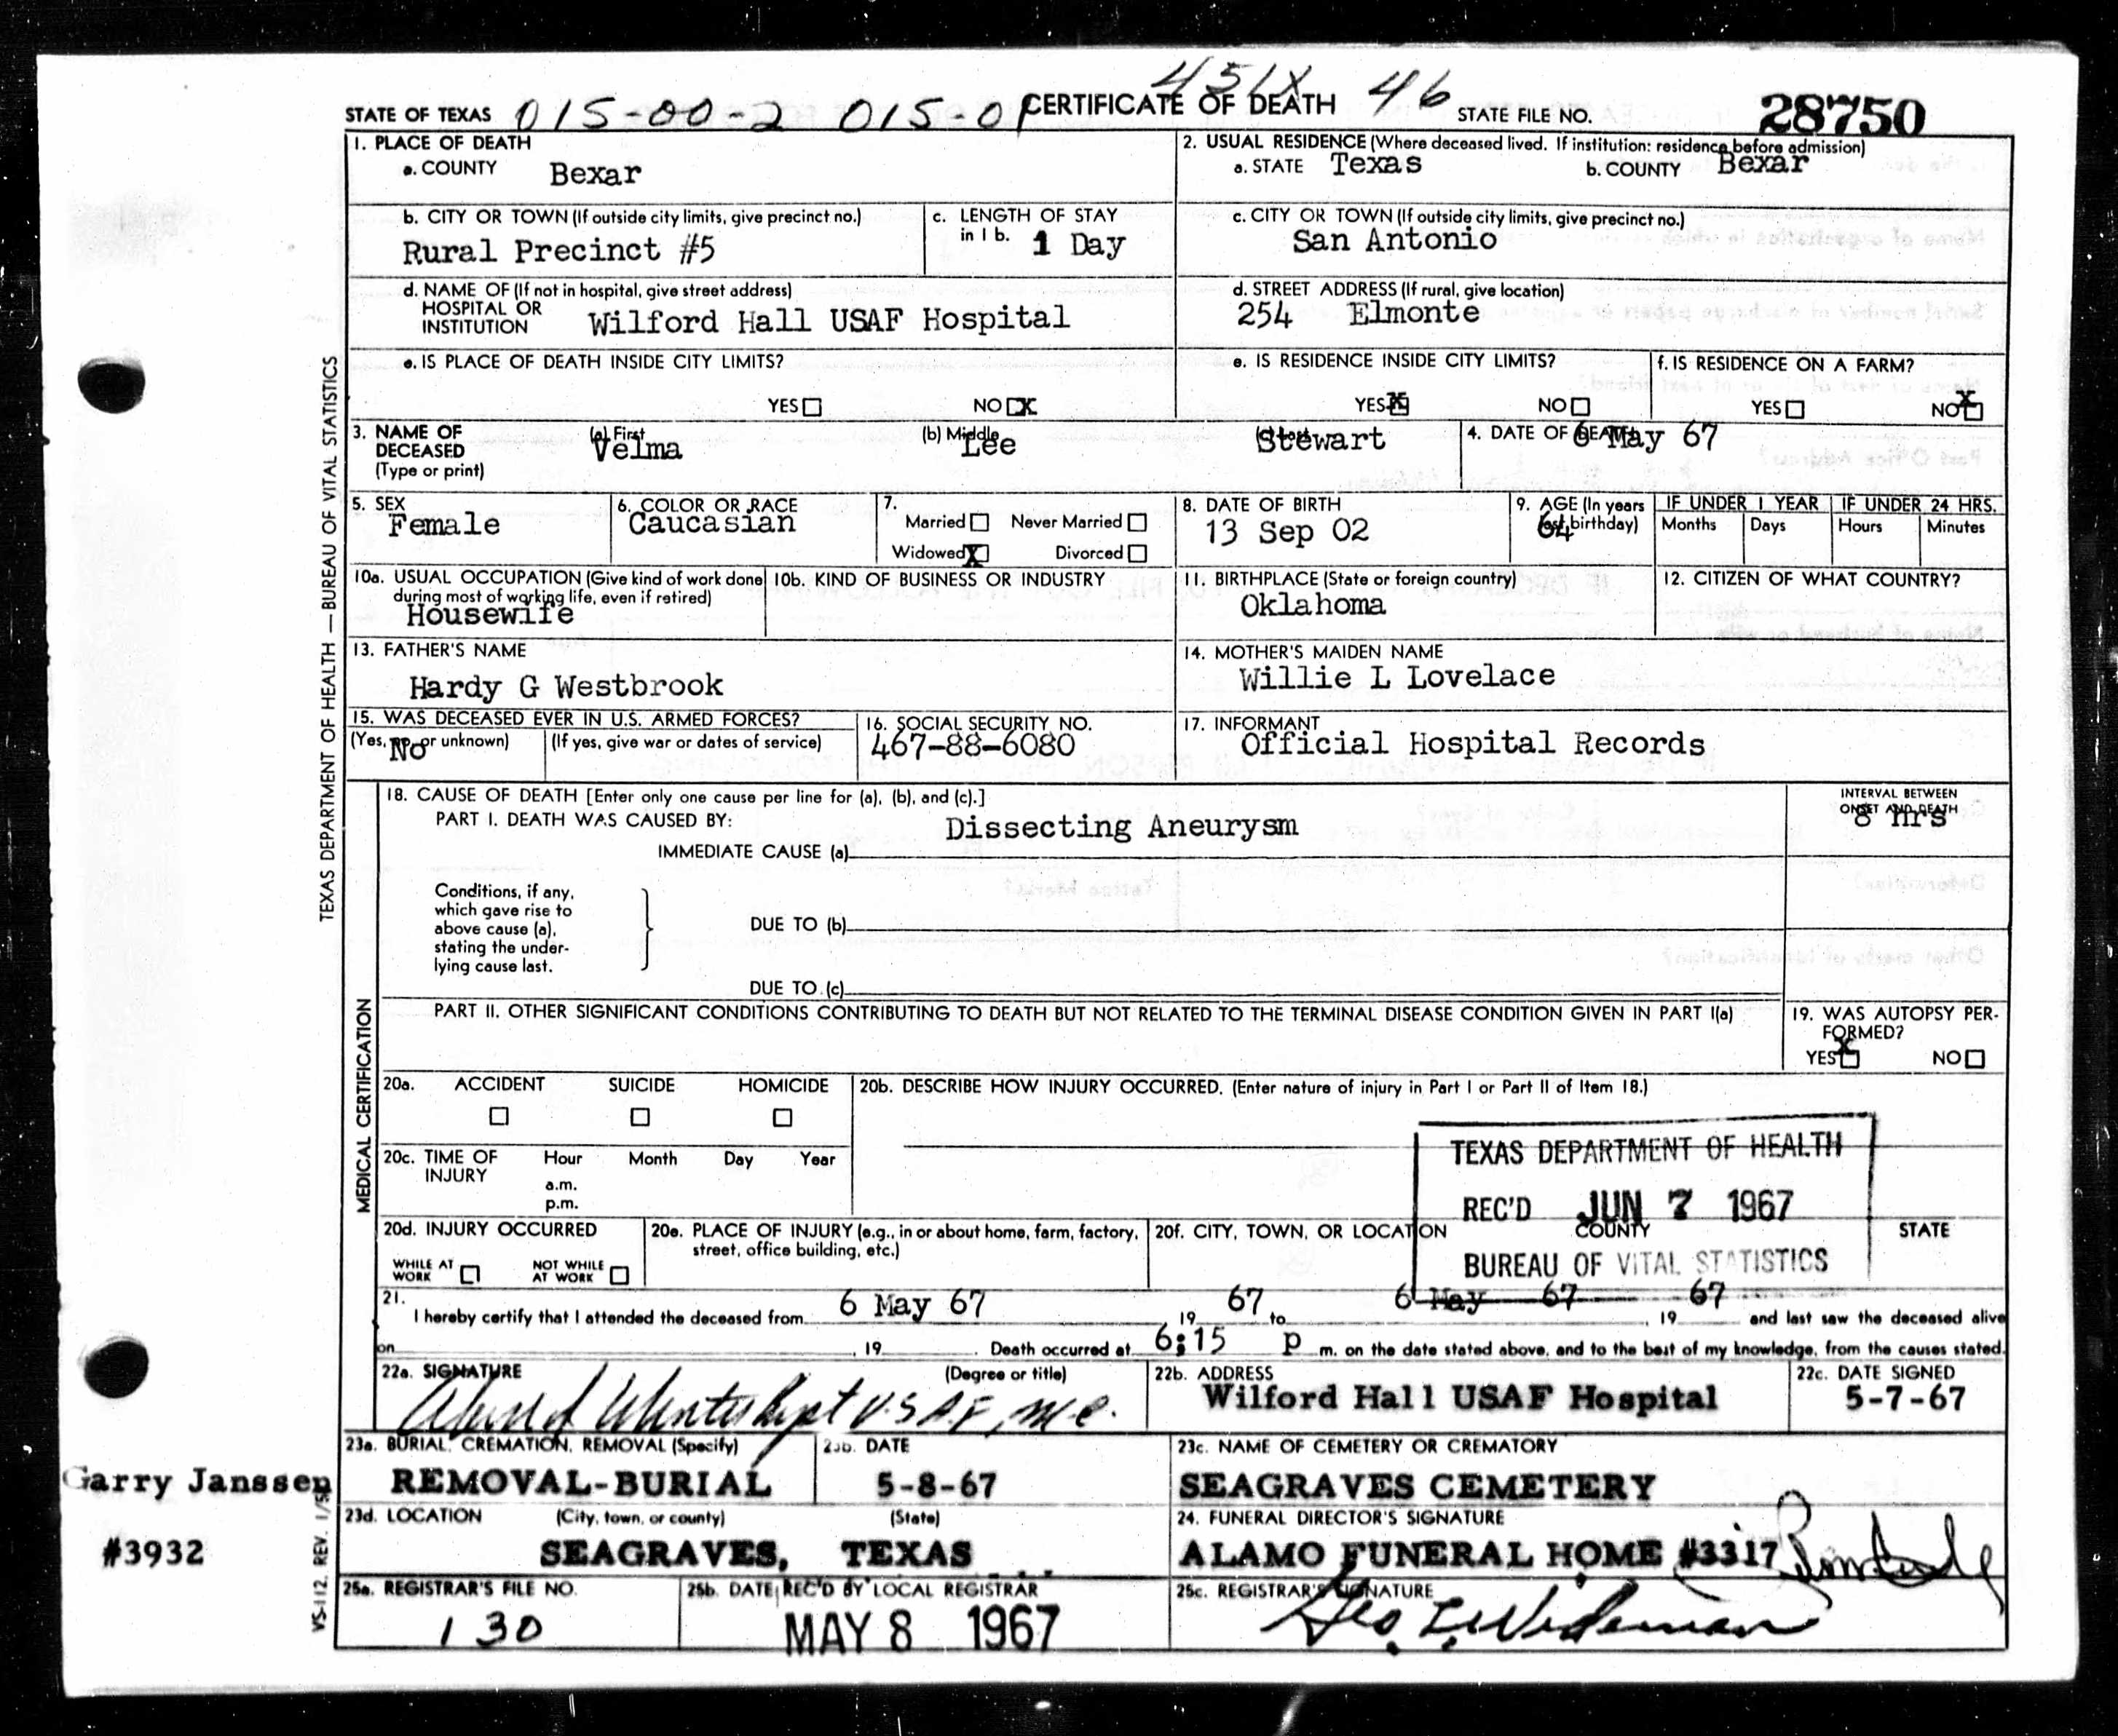 451X 46
STATE OF TEXAS 015-00-2 015-01 CERTIFICATE OF DEATH STATE FILE NO. 28750
1. PLACE OF DEATH
a. COUNTY Bexar
2. USUAL RESIDENCE (Where deceased lived. If institution: residence before admission)
a. STATE Texas b. COUNTY Bexar
b. CITY OR TOWN (If outside city limits, give precinct no.)
Rural Precinct #5
c. LENGTH OF STAY
in 1 b. 1 Day
c. CITY OR TOWN (If outside city limits, give precinct no.)
San Antonio
d. NAME OF (If not in hospital, give street address)
HOSPITAL OR
INSTITUTION Wilford Hall USAF Hospital
d. STREET ADDRESS (If rural, give location)
254 Elmonte
e. IS PLACE OF DEATH INSIDE CITY LIMITS?
YES NO X
e. IS RESIDENCE INSIDE CITY LIMITS?
YES X NO
f. IS RESIDENCE ON A FARM?
YES NO X
3. NAME OF
DECEASED
(Type or print)
(a) First
Velma
(b) Middle
Lee
Stewart
4. DATE OF DEATH 6 May 67
5. SEX
Female
6. COLOR OR RACE
Caucasian
7.
Married Never Married
Widowed X Divorced
8. DATE OF BIRTH
13 Sep 02
9. AGE (In years
last birthday) 64
IF UNDER 1 YEAR
Months Days
IF UNDER 24 HRS.
Hours Minutes
10a. USUAL OCCUPATION (Give kind of work done
during most of working life, even if retired)
Housewife
10b. KIND OF BUSINESS OR INDUSTRY
11. BIRTHPLACE (State or foreign country)
Oklahoma
12. CITIZEN OF WHAT COUNTRY?
13. FATHER'S NAME
Hardy G Westbrook
14. MOTHER'S MAIDEN NAME
Willie L Lovelace
15. WAS DECEASED EVER IN U.S. ARMED FORCES?
(Yes, no, or unknown) No (If yes, give war or dates of service)
16. SOCIAL SECURITY NO.
467-88-6080
17. INFORMANT
Official Hospital Records
TEXAS DEPARTMENT OF HEALTH — BUREAU OF VITAL STATISTICS
MEDICAL CERTIFICATION
18. CAUSE OF DEATH [Enter only one cause per line for (a), (b), and (c).]
PART I. DEATH WAS CAUSED BY:
IMMEDIATE CAUSE (a) Dissecting Aneurysm
INTERVAL BETWEEN
ONSET AND DEATH
8 hrs
Conditions, if any,
which gave rise to
above cause (a),
stating the under-
lying cause last.
DUE TO (b)
DUE TO (c)
PART II. OTHER SIGNIFICANT CONDITIONS CONTRIBUTING TO DEATH BUT NOT RELATED TO THE TERMINAL DISEASE CONDITION GIVEN IN PART I(a)
19. WAS AUTOPSY PER-
FORMED?
YES X NO
20a. ACCIDENT SUICIDE HOMICIDE
20b. DESCRIBE HOW INJURY OCCURRED. (Enter nature of injury in Part I or Part II of Item 18.)
20c. TIME OF
INJURY
Hour Month Day Year
a.m.
p.m.
TEXAS DEPARTMENT OF HEALTH
REC'D JUN 7 1967
BUREAU OF VITAL STATISTICS
20d. INJURY OCCURRED
WHILE AT
WORK
NOT WHILE
AT WORK
20e. PLACE OF INJURY (e.g., in or about home, farm, factory,
street, office building, etc.)
20f. CITY, TOWN, OR LOCATION COUNTY STATE
21.
I hereby certify that I attended the deceased from 6 May 67, 19 67 to 6 May 67, 19 67 and last saw the deceased alive
on , 19 . Death occurred at 6:15 p m. on the date stated above, and to the best of my knowledge, from the causes stated.
22a. SIGNATURE (Degree or title)
USAF, M.C.
22b. ADDRESS
Wilford Hall USAF Hospital
22c. DATE SIGNED
5-7-67
23a. BURIAL, CREMATION, REMOVAL (Specify)
REMOVAL-BURIAL
23b. DATE
5-8-67
23c. NAME OF CEMETERY OR CREMATORY
SEAGRAVES CEMETERY
Garry Janssen
#3932
VS-112, REV. 1/5
23d. LOCATION (City, town, or county) (State)
SEAGRAVES, TEXAS
24. FUNERAL DIRECTOR'S SIGNATURE
ALAMO FUNERAL HOME #3317
25a. REGISTRAR'S FILE NO.
130
25b. DATE REC'D BY LOCAL REGISTRAR
MAY 8 1967
25c. REGISTRAR'S SIGNATURE
Geo. L. Wideman